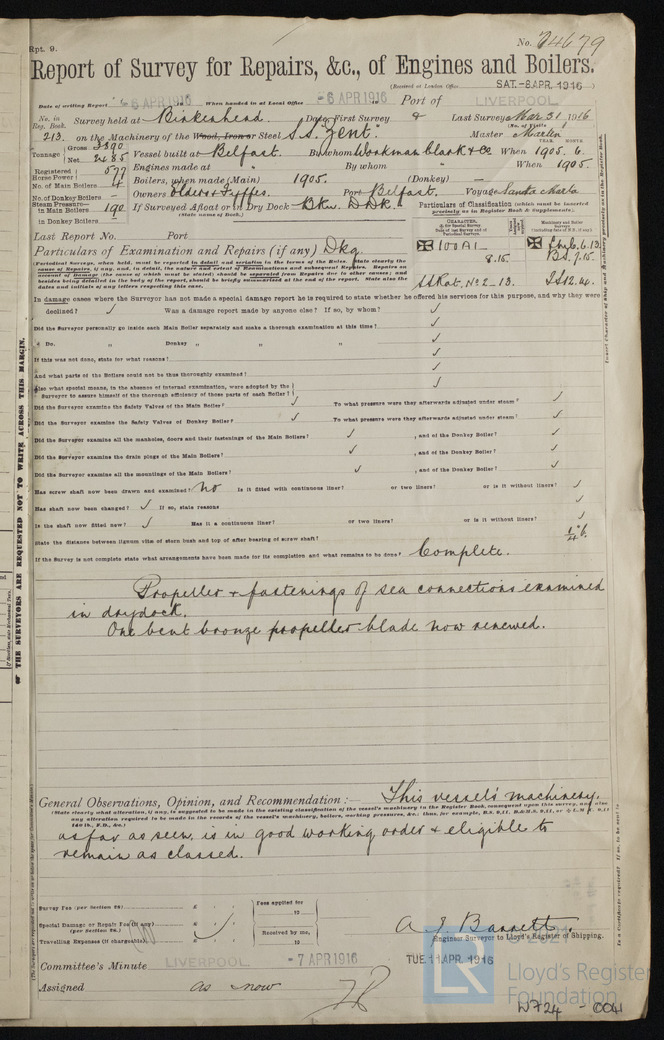 Rpt. 9.
No. 74679
Report of Survey for Repairs, &c., of Engines and Boilers.
(Received at London Office SAT. 8 APR. 1916
Date of writing Report 6 APR 1916 When handed in at Local Office 6 APR 1916 Port of LIVERPOOL
No. in Reg. Book. Survey held at Birkenhead Date, First Survey & Last Survey Mar 31 1916
(No. of Visits
213 on the Machinery of the Wood, Iron or Steel S.S. "Zent". Master Martin
Tonnage Gross 3890 Net 2485 Vessel built at Belfast. By whom Workman Clark & Co. When 1905. 6.
YEAR. MONTH.
Registered Horse Power 577 Engines made at " By whom " When 1905.
No. of Main Boilers 4 Boilers, when made (Main) 1905. (Donkey) —
No. of Donkey Boilers — Owners Elders & Fyffes Port Belfast. Voyage Santa Marta
Steam Pressure— in Main Boilers 190 If Surveyed Afloat or in Dry Dock Bkn. D.Dk.
(State name of Dock.)
in Donkey Boilers —
Particulars of Classification (which must be inserted precisely as in Register Book & Supplements.)
Last Report No. Port
100A1 — 8.15.
B.S. 7.15.
SSNo. 2-13.
Particulars of Examination and Repairs (if any) Dkg
(Periodical Surveys, when held, must be reported in detail and seriatim in the terms of the Rules. State clearly the cause of Repairs, if any, and, in detail, the nature and extent of Examinations and subsequent Repairs. Repairs on account of Damage (the cause of which must be stated) should be separated from Repairs due to other causes; and besides being detailed in the body of the report, should be briefly summarised at the end of the report. State also the dates and initials of any letters respecting this case.
In damage cases where the Surveyor has not made a special damage report he is required to state whether he offered his services for this purpose, and why they were
declined? ✓ Was a damage report made by anyone else? If so, by whom? ✓
Did the Surveyor personally go inside each Main Boiler separately and make a thorough examination at this time? ✓
Do. " Donkey " " " ✓
If this was not done, state for what reasons? ✓
And what parts of the Boilers could not be thus thoroughly examined? ✓
Also what special means, in the absence of internal examination, were adopted by the Surveyor to assure himself of the thorough efficiency of those parts of each Boiler? ✓
Did the Surveyor examine the Safety Valves of the Main Boiler? ✓ To what pressure were they afterwards adjusted under steam? ✓
Did the Surveyor examine the Safety Valves of Donkey Boiler? ✓ To what pressure were they afterwards adjusted under steam? ✓
Did the Surveyor examine all the manholes, doors and their fastenings of the Main Boilers? ✓, and of the Donkey Boiler? ✓
Did the Surveyor examine the drain plugs of the Main Boilers? ✓, and of the Donkey Boiler? ✓
Did the Surveyor examine all the mountings of the Main Boilers? ✓, and of the Donkey Boiler? ✓
Has screw shaft now been drawn and examined? No Is it fitted with continuous liner? or two liners? or is it without liners? ✓
Has shaft now been changed? ✓ If so, state reasons ✓
Is the shaft now fitted new? ✓ Has it a continuous liner? or two liners? or is it without liners? ✓
State the distance between lignum vitæ of stern bush and top of after bearing of screw shaft? 1/4 b.
If the Survey is not complete state what arrangements have been made for its completion and what remains to be done? Complete.
Propeller & fastenings of sea connections examined
in drydock.
One bent bronze propeller blade now renewed.
General Observations, Opinion, and Recommendation:— This vessel's machinery,
(State clearly what alteration, if any, is suggested to be made in the existing classification of the vessel's machinery in the Register Book, consequent upon this survey, and also any alteration required to be made in the records of the vessel's machinery, boilers, working pressures, &c.;
as far as seen, is in good working order & eligible to
remain as classed.
Survey Fee (per Section 28) £ : :
Special Damage or Repair Fee (if any) (per Section 28.) £ : :
Travelling Expenses (if chargeable) £ : :
Fees applied for 19
Received by me, 19
A. J. Barrett.
Engineer Surveyor to Lloyd's Register of Shipping.
Committee's Minute LIVERPOOL 7 APR 1916 TUE. 11 APR. 1916
Assigned as now
Lloyd's Register
Foundation
W724 - 0041
OF THE SURVEYORS ARE REQUESTED NOT TO WRITE ACROSS THIS MARGIN.